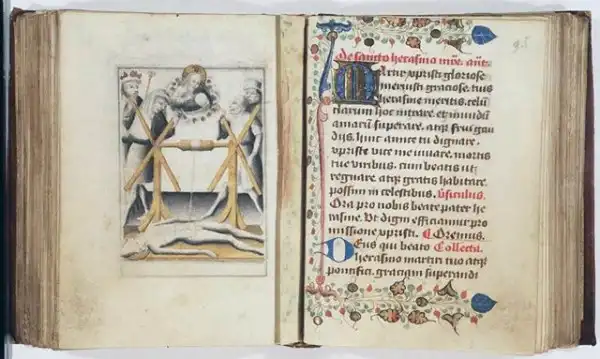 95
De sancto herasmo mre. añt.
Martir xpristi gloriose
meruisti graciose. tuis
herasme meritis. celū
clarum hoc intrare. et mundū
amarū superare. atqz frui gau
diis. hinc tu dignare.
xpriste vice me iuuare. mortis
tue viribus. cum beatis ut
regnare. atqz gratis habitare.
possim in celestibus. v̄siculus.
Ora pro nobis beate pater he
rasme. Ut digni efficiamur pro
missione xpristi. Oremus.
Deus qui beato Collecta.
herasmo martiri tuo atqz
pontifici. graciam superandi